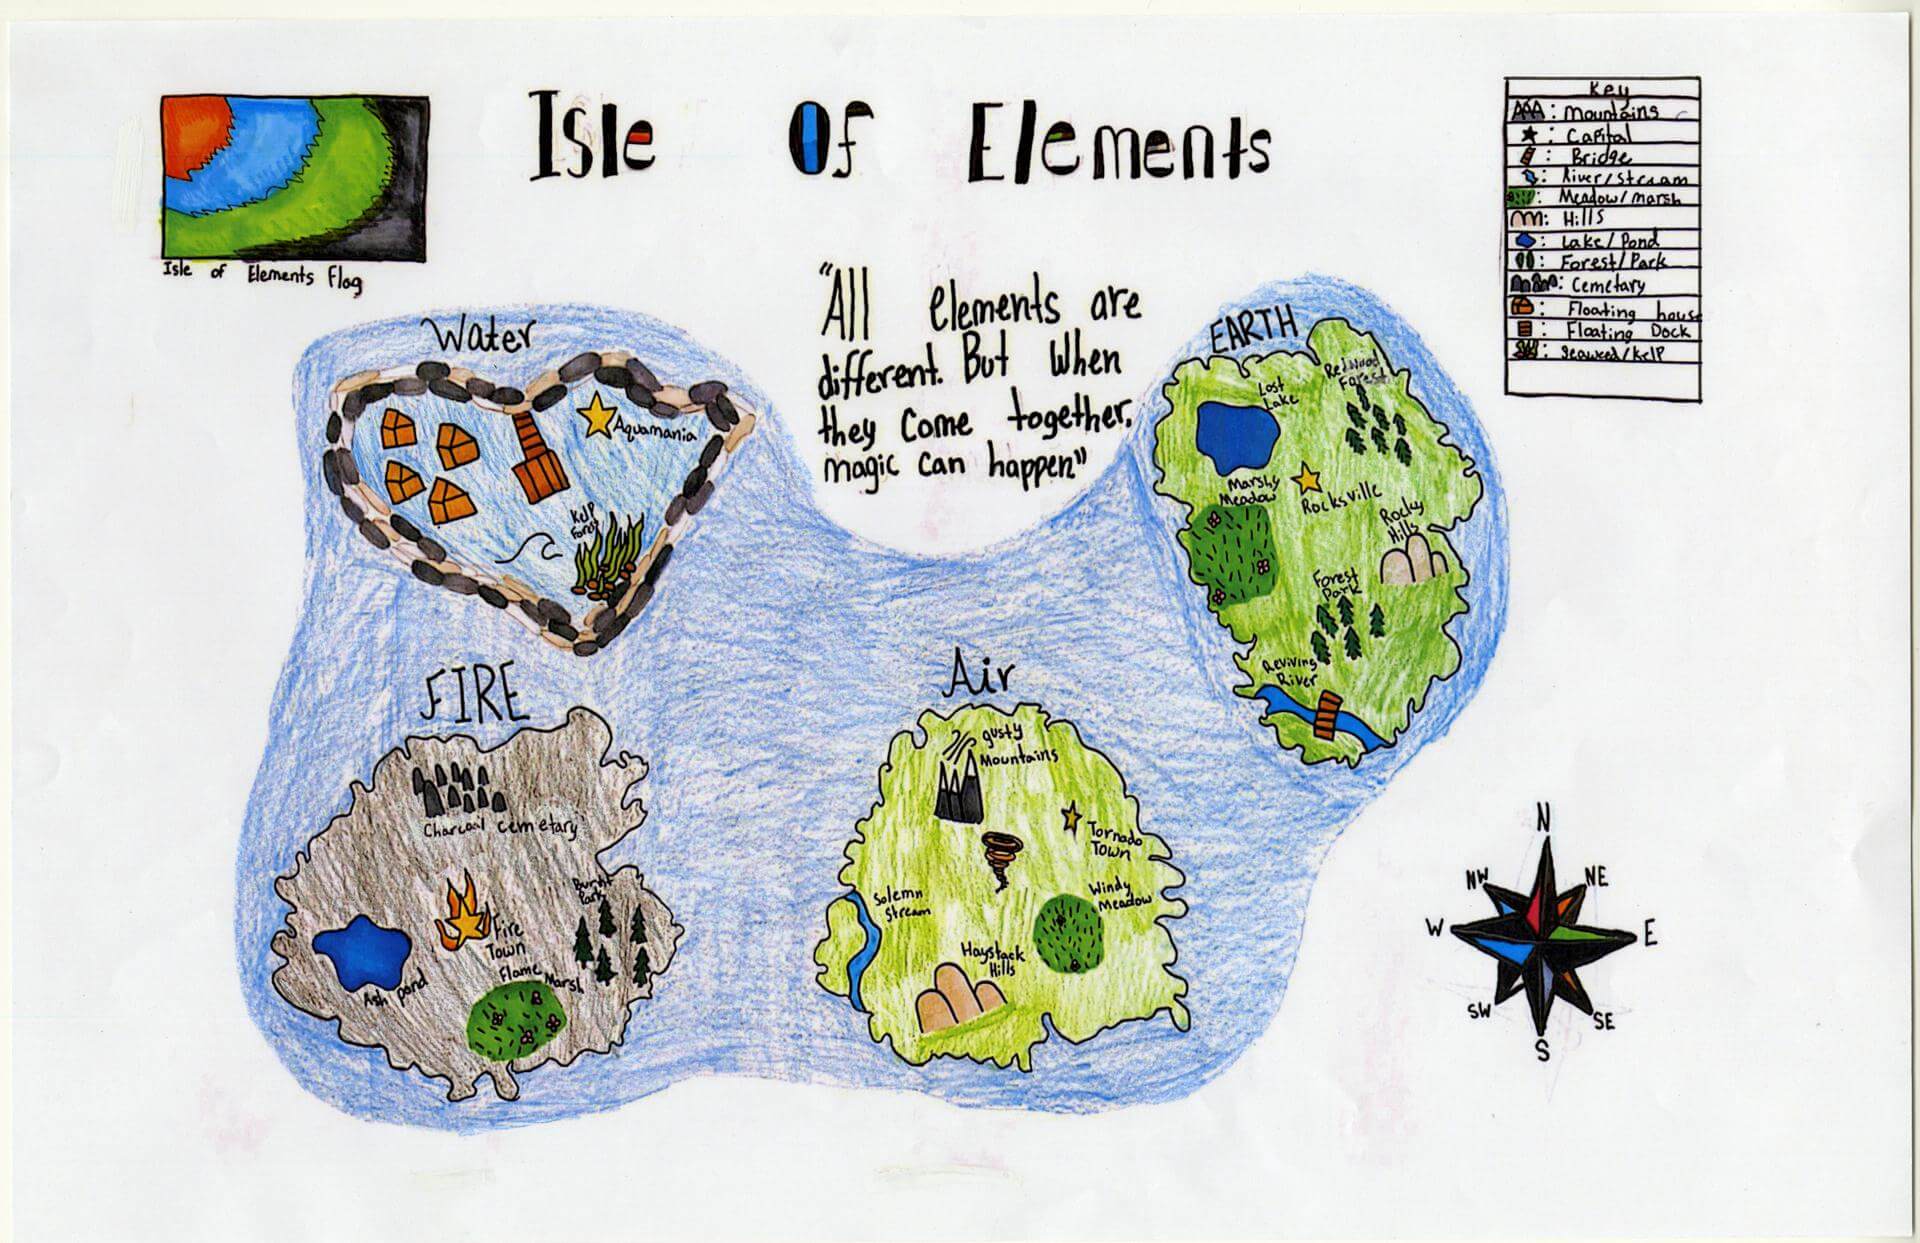 Isle Of Elements
Isle of Elements Flag
Key
: Mountains
: Capital
: Bridge
: River/Stream
: Meadow/marsh
: Hills
: Lake/Pond
: Forest/Park
: Cemetary
: Floating house
: Floating Dock
: Seaweed/kelp
"All elements are
different. But When
they Come together.
magic can happen"
Water
Aquamania
Kelp
Forest
EARTH
Lost
Lake
Redwood
Forest
Marshy
Meadow
Rocksville
Rocky
Hills
Forest
Park
Reviving
River
FIRE
Charcoal cemetary
Burnt
Park
Fire
Town
Flame
Marsh
Ash pond
Air
gusty
Mountains
Tornado
Town
Solemn
Stream
Windy
Meadow
Haystack
Hills
N
NW
NE
W
E
SW
SE
S